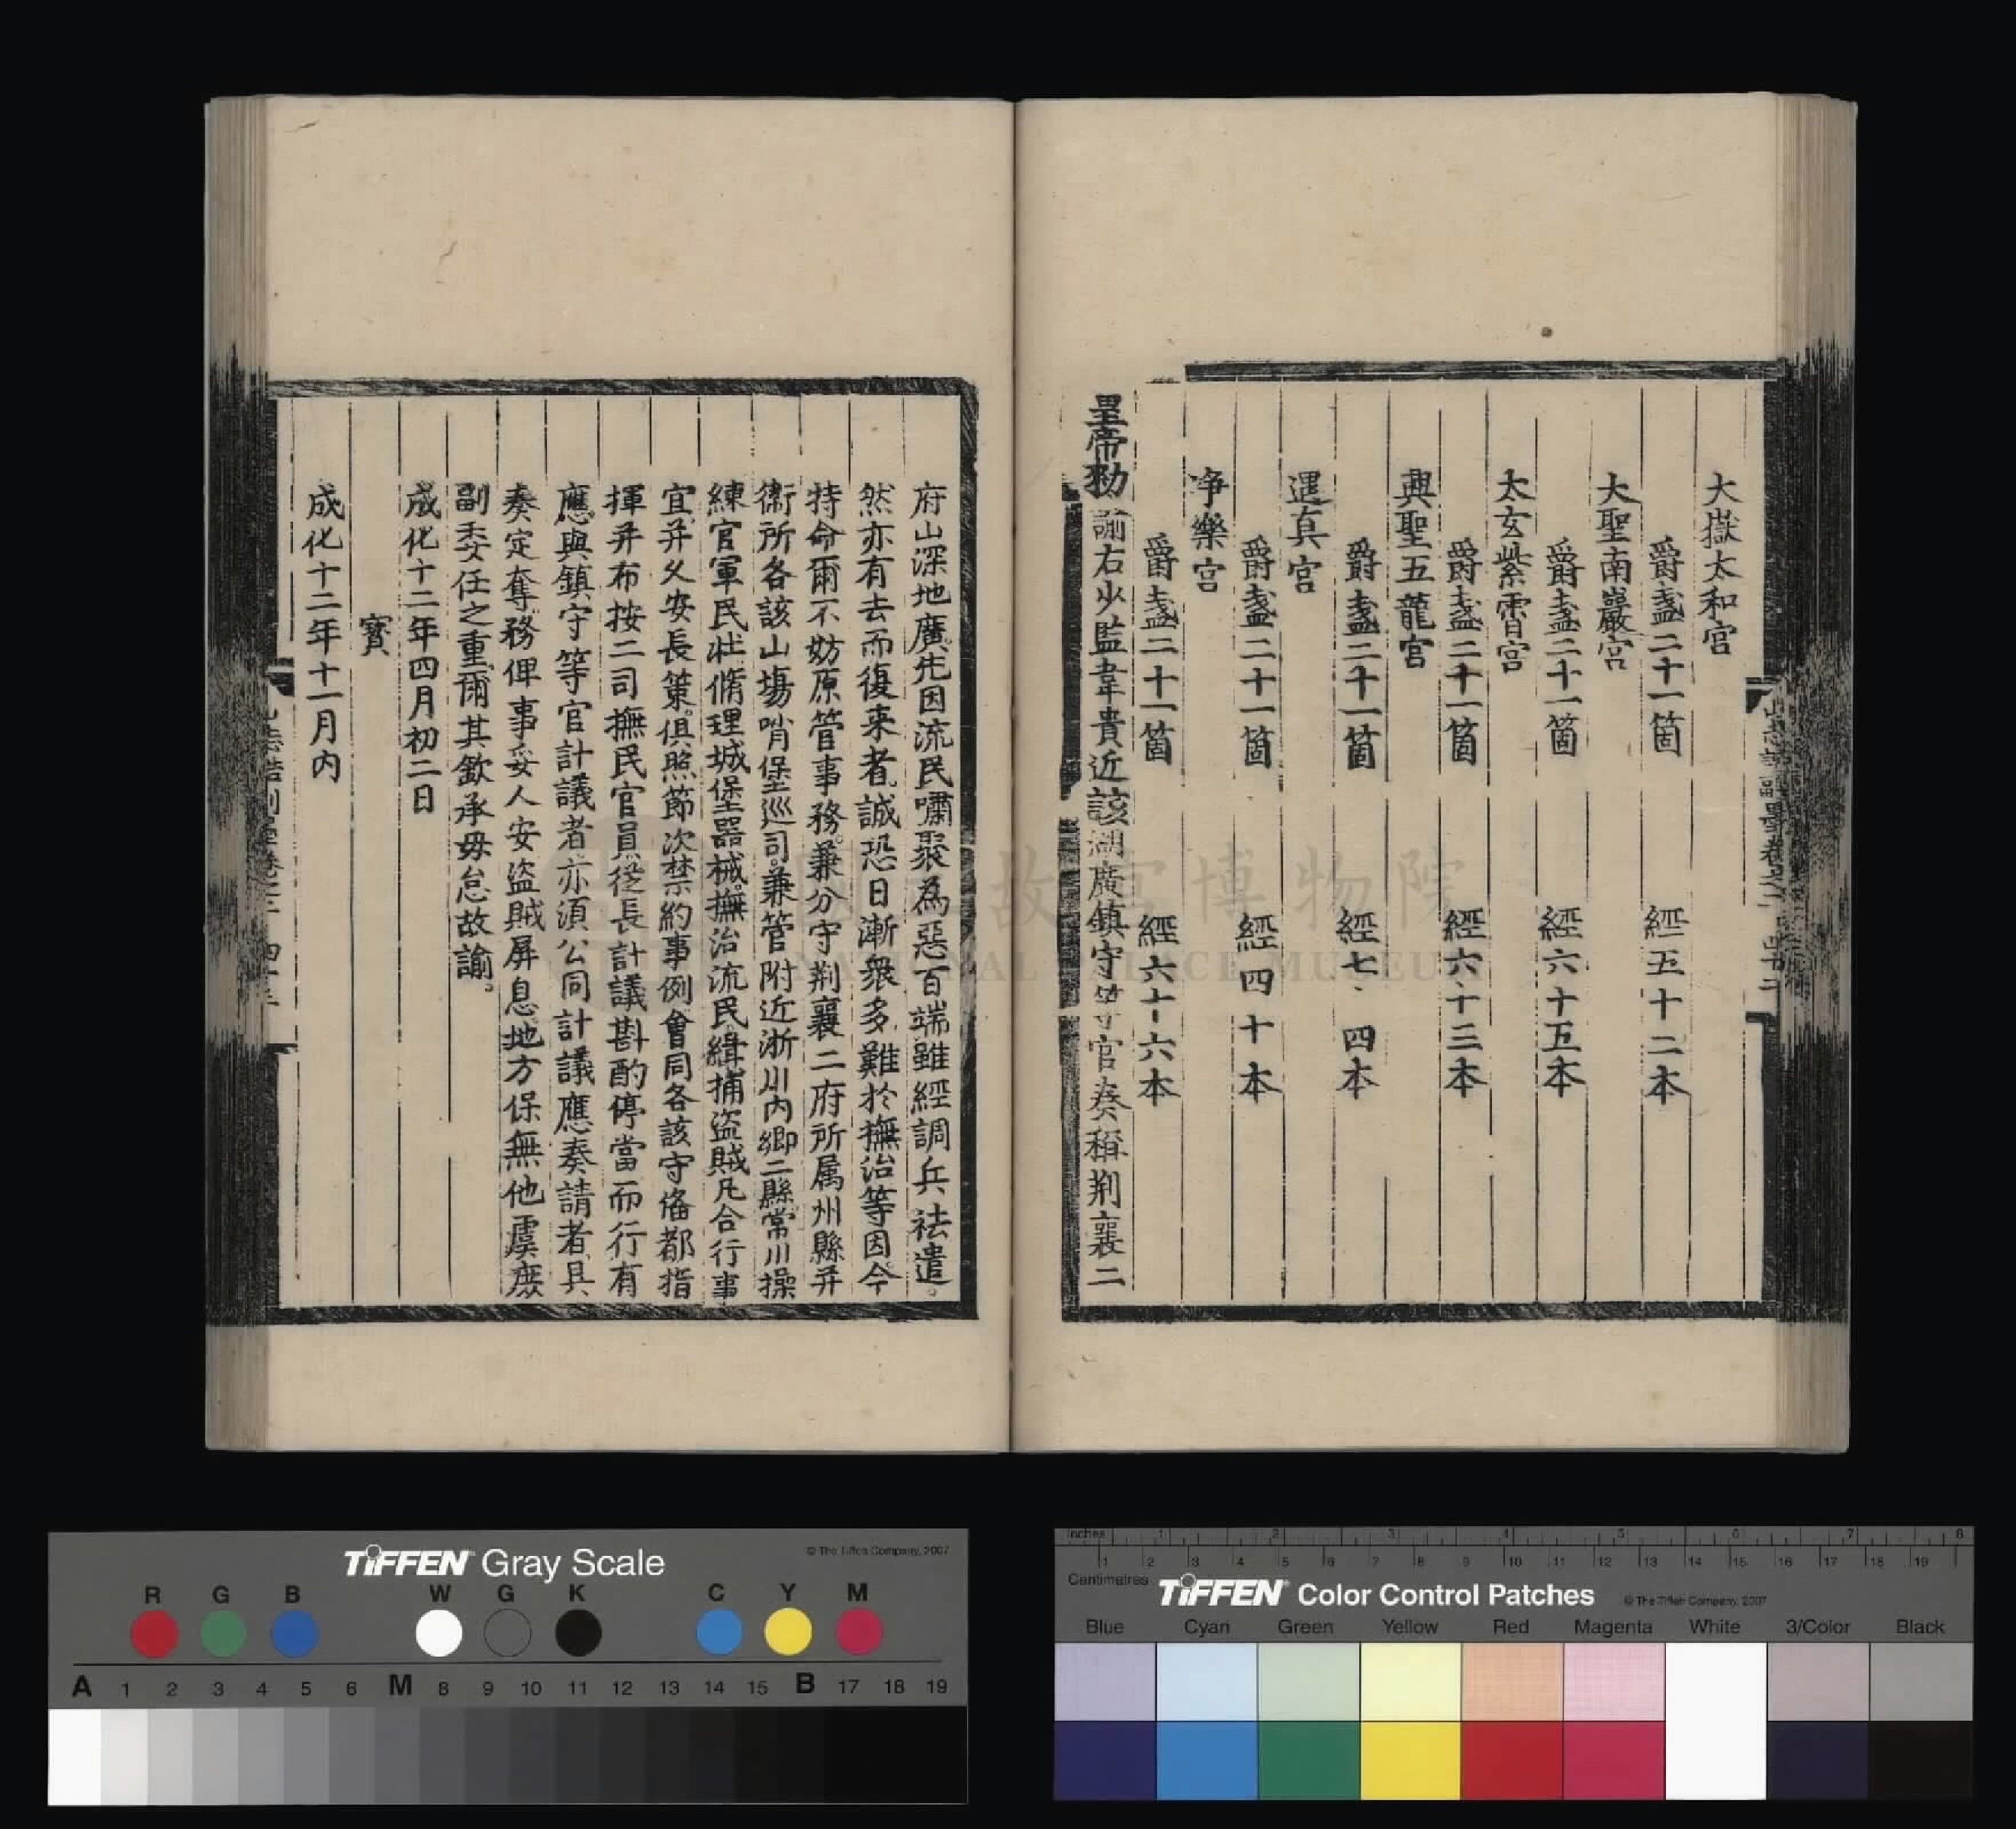 大嶽太和宫
爵盞二十一箇 經五十二本
大聖南巖宫
爵盞二十一箇 經六十五本
太玄紫霄宫
爵盞二十一箇 經六十三本
興聖五龍宫
爵盞二十一箇 經七十四本
遇真宫
爵盞二十一箇 經四十本
净樂宫
爵盞二十一箇 經六十六本
皇帝勑諭右少監韋貴近該湖廣鎮守等官奏稱荆襄二
府山深地廣先因流民嘯聚為惡百端雖經調兵祛遣。
然亦有去而復来者誠恐日漸衆多難於撫治等因今
特命爾不妨原管事務。兼分守荆襄二府所属州縣并
衛所各該山場哨堡巡司。兼管附近淅川内鄉二縣常川操
練官軍民壯脩理城堡器械。撫治流民緝捕盗賊凡合行事
宜并乆安長策。俱照節次禁約事例會同各該守俻都指
揮并布按二司撫民官員從長計議斟酌停當而行有
應與鎮守等官計議者亦湏公同計議應奏請者具
奏定奪務俾事妥人安盗賊屏息地方保無他虞庶
副委任之重爾其欽承毋怠故諭。
成化十二年四月初二日
寳
成化十二年十一月内
國立故宮博物院
NATIONAL PALACE MUSEUM
TIFFEN Gray Scale
© The Tiffen Company, 2007
R G B W G K C Y M
A 1 2 3 4 5 6 M 8 9 10 11 12 13 14 15 B 17 18 19
Inches 1 2 3 4 5 6 7 8
1 2 3 4 5 6 7 8 9 10 11 12 13 14 15 16 17 18 19
Centimetres
TIFFEN Color Control Patches
© The Tiffen Company, 2007
Blue Cyan Green Yellow Red Magenta White 3/Color Black